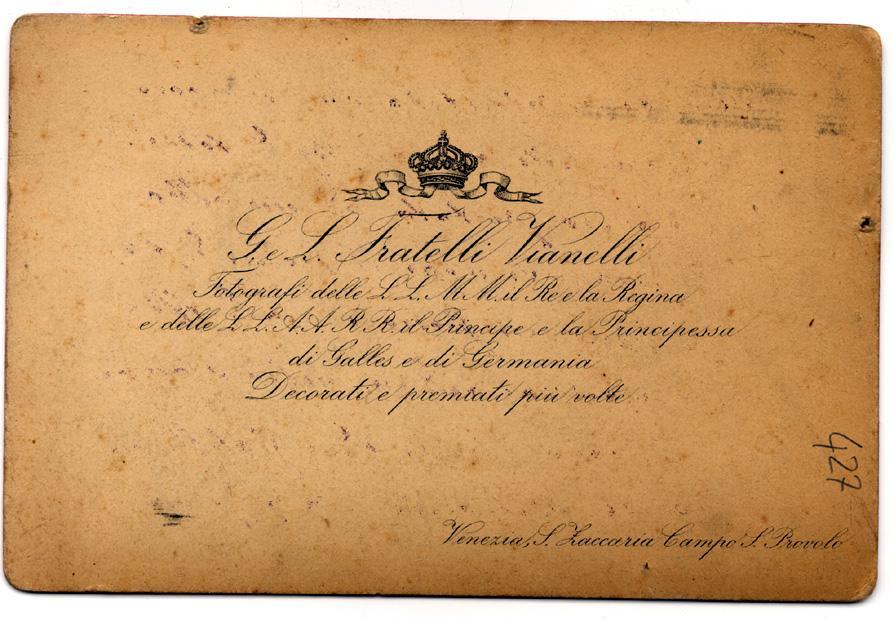 G. e L. Fratelli Vianelli
Fotografi delle L.L. M.M. il Re e la Regina
e delle L.L. A.A. R.R. il Principe e la Principessa
di Galles e di Germania
Decorati e premiati più volte
427
Venezia, S. Zaccaria Campo S. Provolo